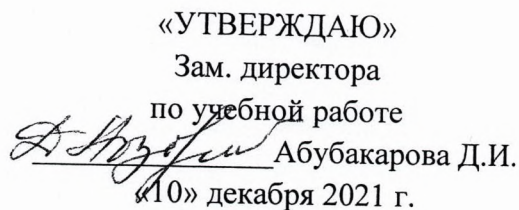 «УТВЕРЖДАЮ»
Зам. директора
по учебной работе
Абубакарова Д.И.
«10» декабря 2021 г.